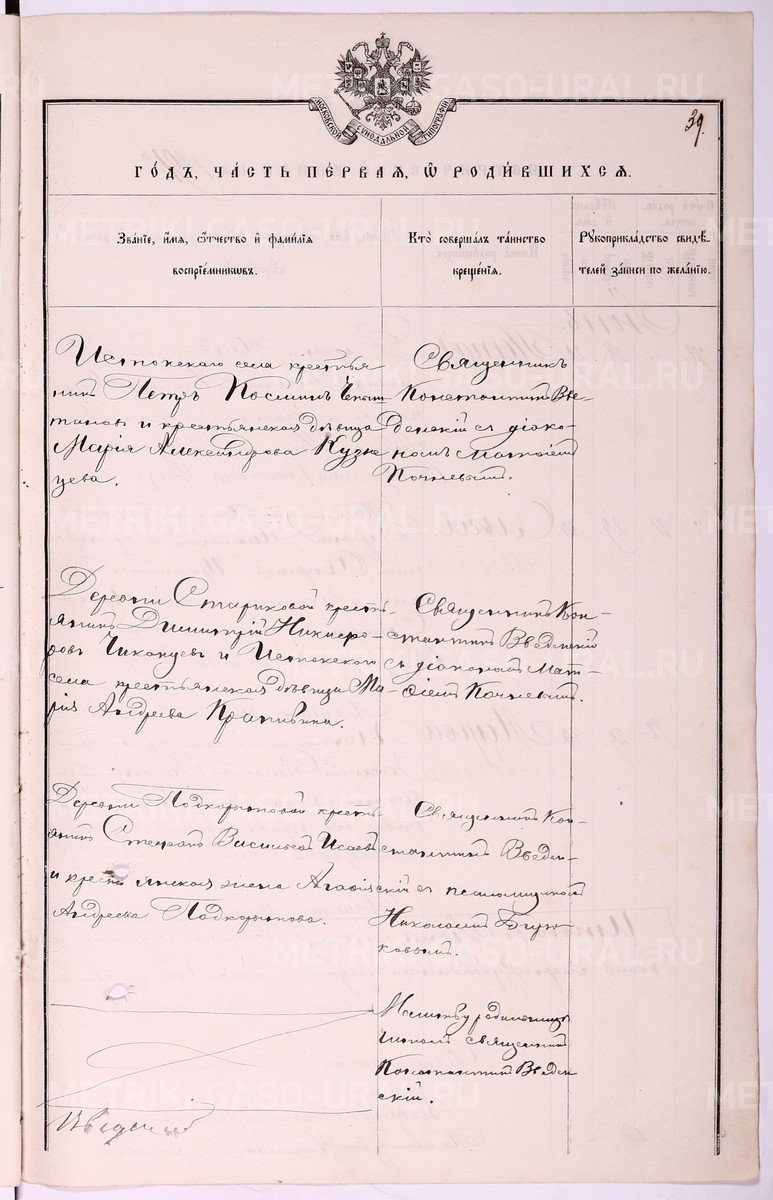 METRIKI.GASO-URAL.RU
МОСКОВСКОЙ СѴНОДАЛЬНОЙ ТИПОГРАФІИ
39.
ГОДЪ, ЧАСТЬ ПЕРВАЯ, Ѡ РОДИВШИХСЯ.
Званіе, имя, отчество и фамилія
воспріемниковъ.
Кто совершалъ таинство
крещенія.
Рукоприкладство свидѣ-
телей записи по желанію.
Истокскаго села крестья
нинъ Петръ Косминъ
и крестьянская дѣвица
Марія Александрова Кузне
цева.
Священникъ
Константинъ Вве-
денскій съ діако-
номъ Матѳіемъ
Кочневымъ.
Деревни Стариковой кресть-
янинъ Димитрій Никифо-
ровъ и Истокскаго
села крестьянская дѣвица Ма-
рія Андреева Крапивина.
Священникъ Кон-
стантинъ Введенскій
съ діакономъ Мат-
ѳіемъ Кочневымъ.
Деревни Подкорытовой кресть-
янинъ Стефанъ Васильевъ Исаевъ
и кресть янская жена Агафія
Андреева Подкорытова.
Священникъ Кон-
стантинъ Введен-
скій съ псаломщикомъ
Николаемъ Бирю-
ковымъ.
Молитву родильницѣ
читалъ священникъ
Константинъ Введен
скій.
Введенскій